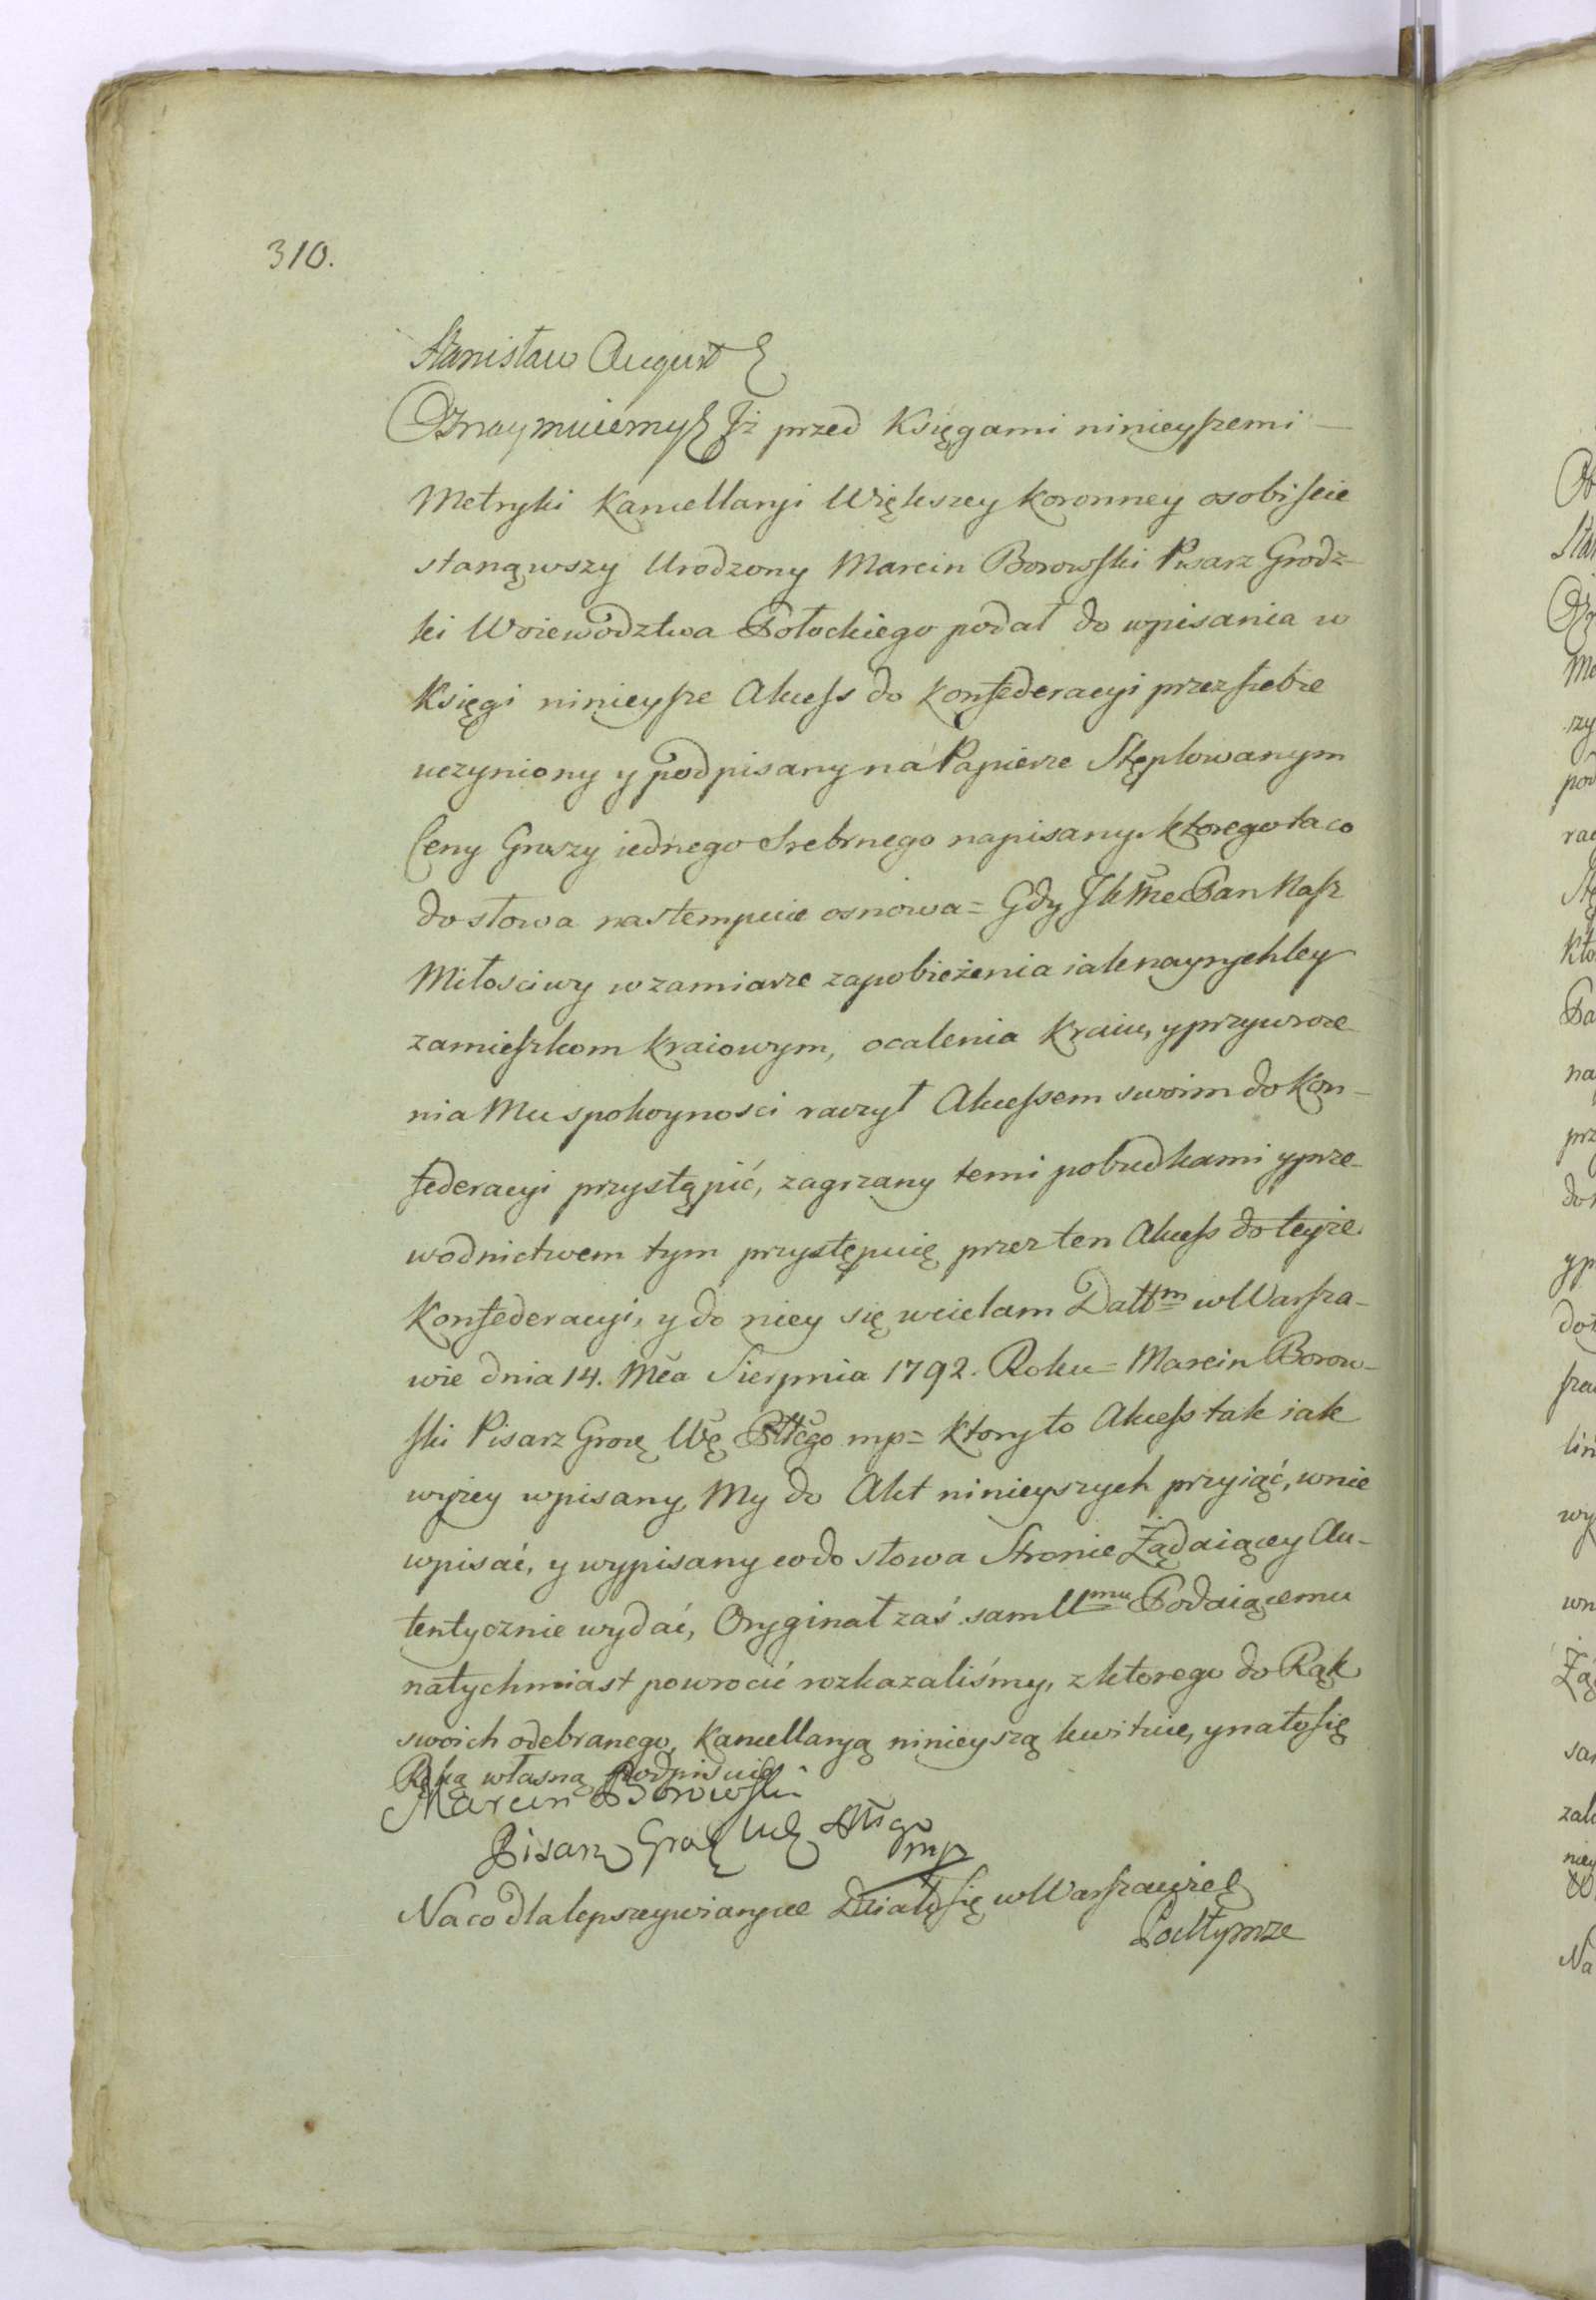 310.
Stanisław August
Oznaymuiemy Iż przed Księgami ninieyszemi
Metryki Kancellaryi Większey Koronney osobiscie
stanąwszy Urodzony Marcin Borowski Pisarz Grodz-
ki Woiewodztwa Połockiego podał do wpisania w
Księgi ninieysze Akcess do Konfederacyi przez siebie
uczyniony y podpisany na Papierze Stęplowanym
Ceny Groszy iednego Srebrnego napisany. ktorego ta co
do słowa nastempuie osnowa = Gdy JKMć Pan Nasz
Miłosciwy w zamiarze zapobieżenia iak nayrychley
zamieszkom kraiowym, ocalenia Kraiu, y przywroce
nia Mu spokoynosci raczył Akcessem swoim do Kon-
federacyi przystąpić, zagrzany temi pobudkami y prze-
wodnictwem tym przystępuię przez ten Akcess do teyże
Konfederacyi, y do niey się wcielam Datt<sup>m</sup> w Warsza-
wie dnia 14. Mca Sierpnia 1792. Roku = Marcin Borow-
ski Pisarz Grodz Wę Płłgo mp = ktory to Akcess tak iak
wyżey wpisany, My do Akt ninieyszych przyiąć, w nie
wpisać, y wypisany co do słowa Stronie Żądaiącey Au-
tentycznie wydać, Oryginał zaś sam U<sup>mu</sup> Podaiącemu
natychmiast powrocić rozkazaliśmy, z ktorego do Rąk
swoich odebranego, Kancellaryą ninieyszą kwituie, y na to się
Ręką własną podpisuie
Marcin Borowski
Pisarz Grodz Wę Płłgo
mp
Na co dla lepszey wiary etc Działo się w Warszawie